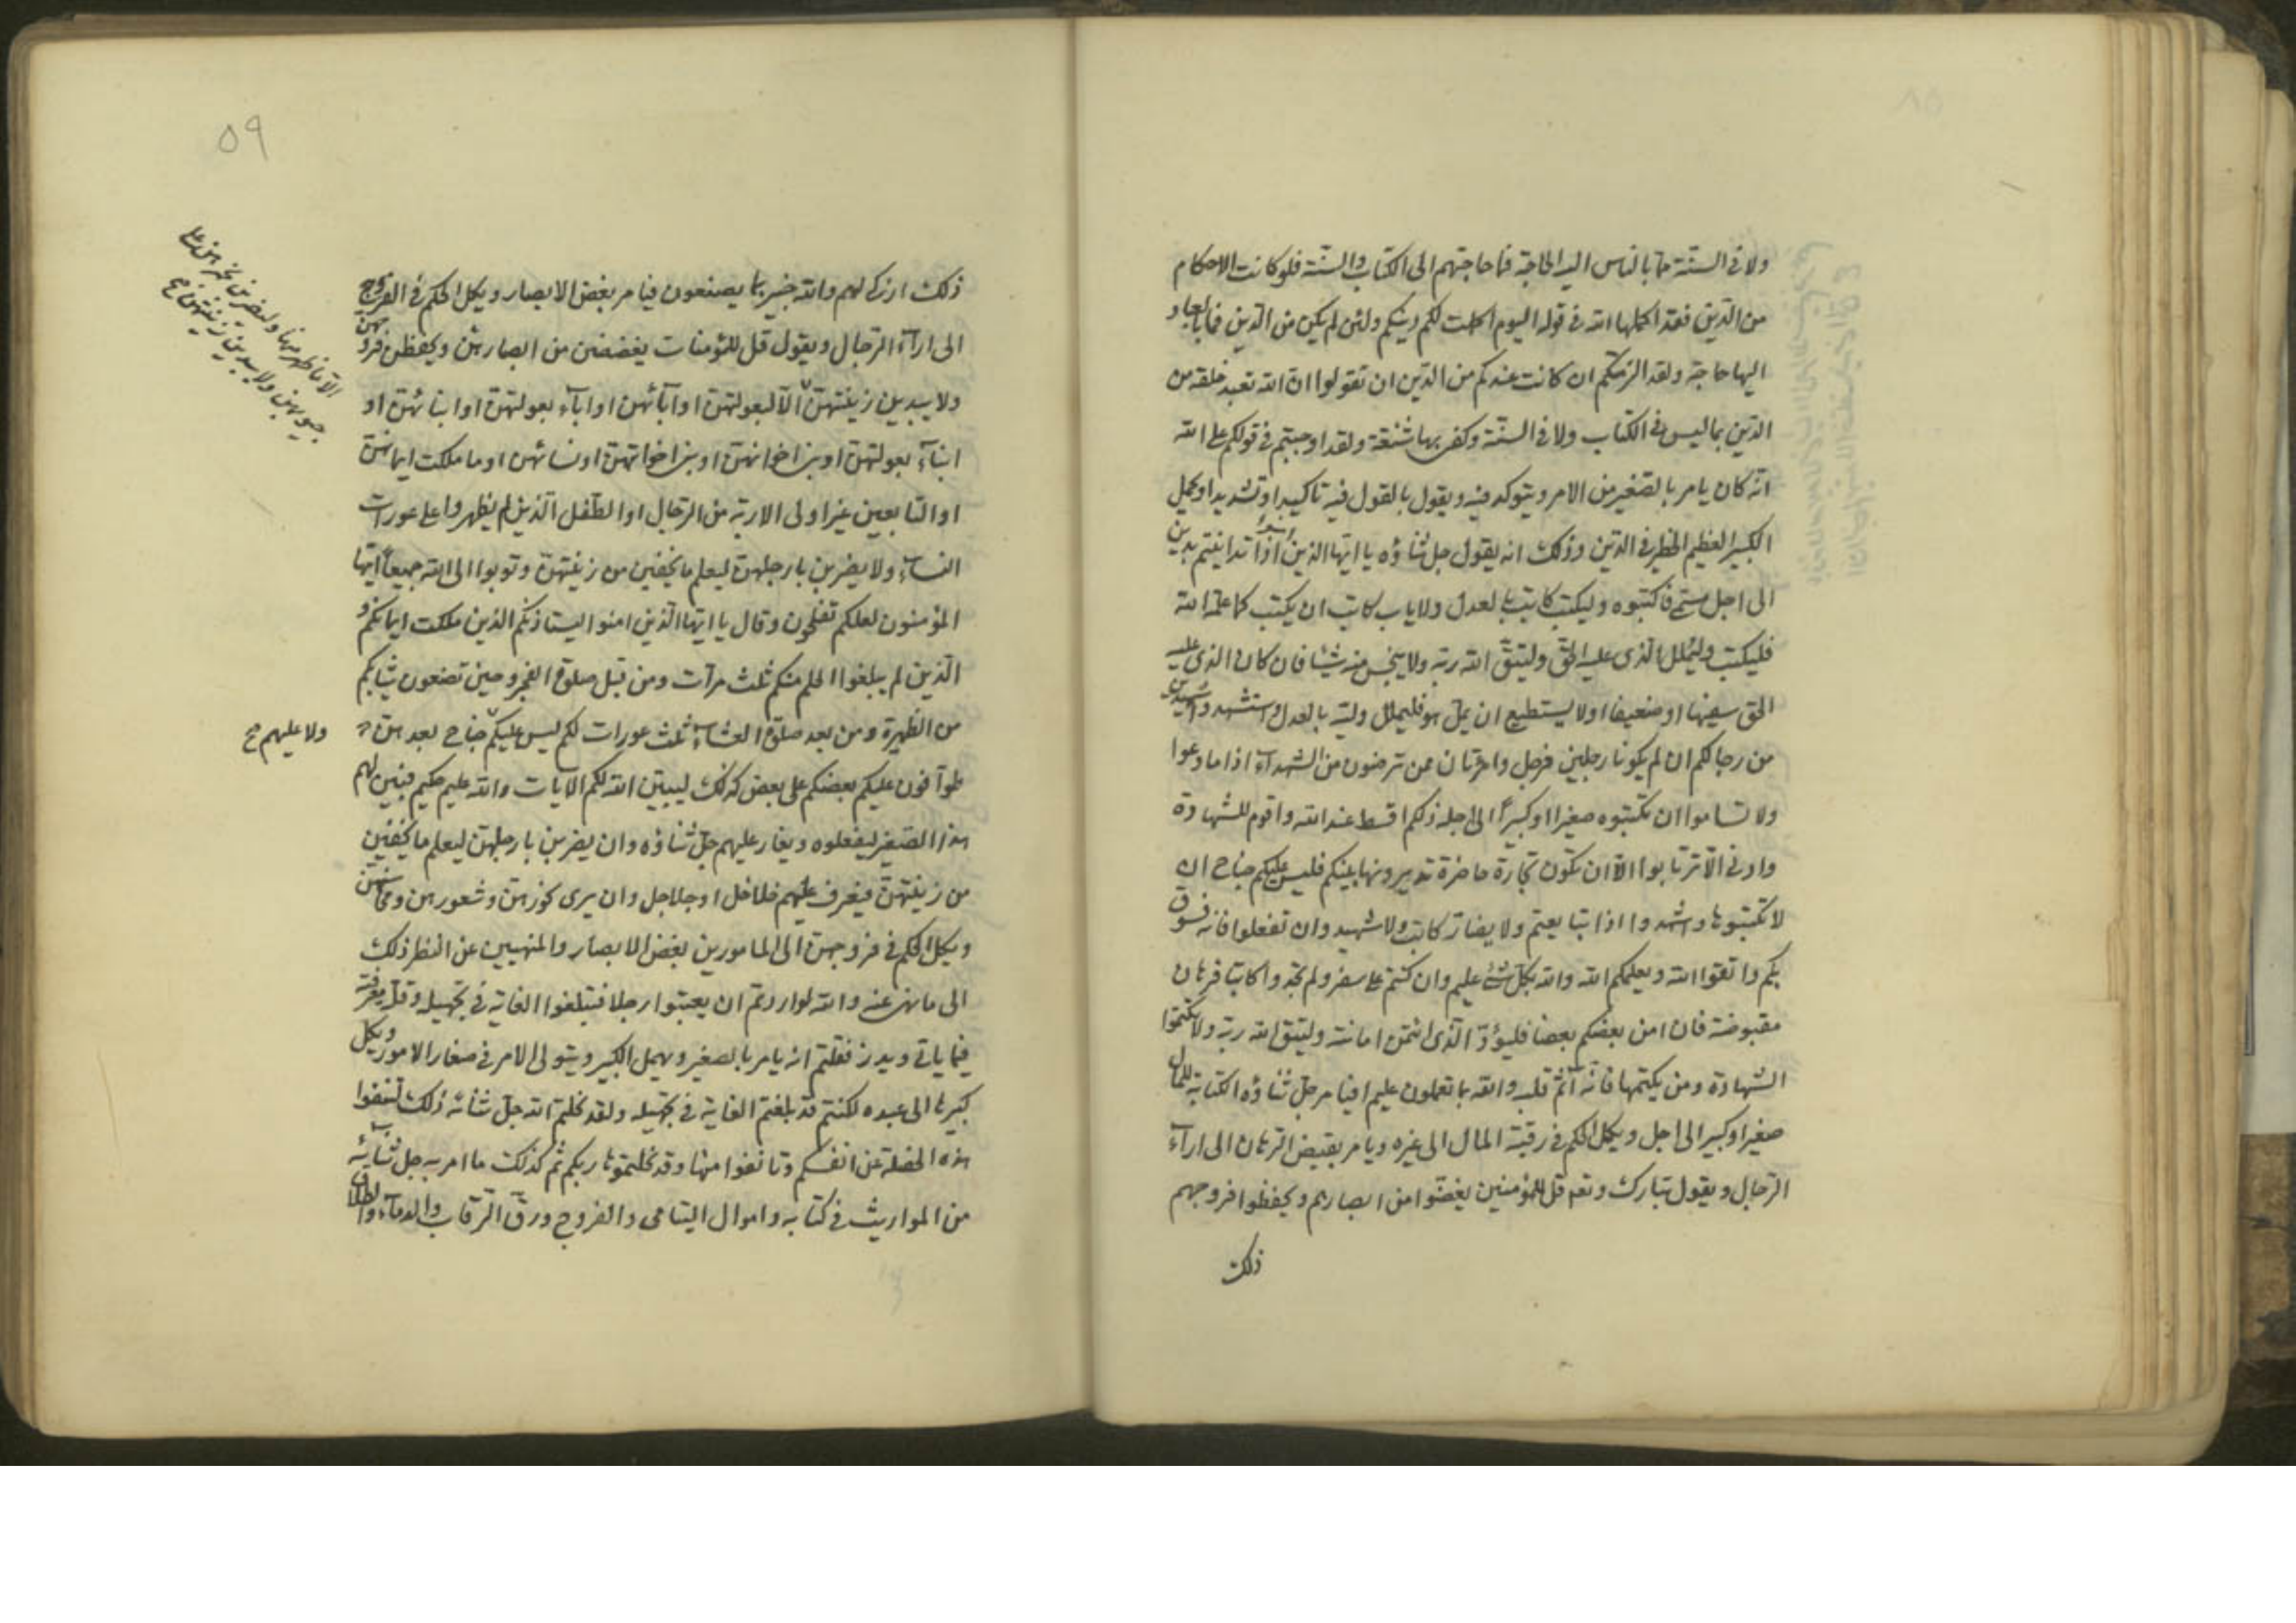 ولا في السنة ما بالناس اليه الحاجة فما حاجتهم الى الكتاب والسنة فلو كانت الاحكام
من الدين فقد اكملها الله في قوله اليوم اكملت لكم دينكم ولئن لم يكن من الدين فما بالعباد
اليها حاجة ولقد الزمتكم ان كانت عندكم من الدين ان تقولوا ان الله تعبد خلقه من
الدين بما ليس في الكتاب ولا في السنة وكفى بها شنعة ولقد اوجبتم في قولكم على الله
انه كان يامر بالصغير من الامر ويتوكد فيه ويقول بالقول فيه تاكيدا وتشديدا ويكل
الكبير العظيم الخطر في الدين وذلك انه يقول جل ثناؤه يا ايها الذين امنوا اذا تداينتم بدين
الى اجل مسمى فاكتبوه وليكتب كاتب بالعدل ولا ياب كاتب ان يكتب كما علمه الله
فليكتب وليملل الذى عليه الحق وليتق الله ربه ولا يبخس منه شيئا فان كان الذى عليه
الحق سفيها او ضعيفا او لا يستطيع ان يمل هو فليملل وليه بالعدل واستشهدوا شهيدين
من رجالكم ان لم يكونا رجلين فرجل وامرءتان ممن ترضون من الشهدآء اذا ما دعوا
ولا تساموا ان تكتبوه صغيرا او كبيرًا الى اجله ذلكم اقسط عند الله واقوم للشهادة
وادنى الّا ترتابوا الّا ان تكون تجارة حاضرة تديرونها بينكم فليس عليكم جناح ان
لا تكتبوها واشهدوا اذا تبايعتم ولا يضارّ كاتب ولا شهيد وان تفعلوا فانه فسوق
بكم واتقوا الله ويعلمكم الله والله بكلّ شئ عليم وان كنتم على سفر ولم تجدوا كاتبا فرهان
مقبوضة فان امن بعضكم بعضا فليؤدّ الّذى ائتمن امانته وليتق الله ربّه ولا تكتموا
الشهادة ومن يكتمها فانّه آثم قلبه والله بما تعملون عليم افيامر جلّ ثناؤه الكتابة للمال
صغيرا وكبيرا الى اجل ويكل الحكم في رقبة المال الى غيره ويامر بقبض الرهان الى ارآء
الرّجال ويقول تبارك وتعه قل للمؤمنين يغضّوا من ابصارهم ويحفظوا فروجهم
ذلك
٥٩
ذلك ازكى لهم والله خبير بما يصنعون فيامر بغض الابصار ويكل الحكم في الفروج
الى ارآء الرّجال ويقول قل للمؤمنات يغضضن من ابصارهنّ ويحفظن فروجهن
ولا يبدين زينتهنّ الّا لبعولتهنّ او آبائهن او ابآء بعولتهنّ او ابنائهنّ او
ابنآء بعولتهنّ او بنى اخوانهنّ او بنى اخواتهنّ او نسائهن او ما ملكت ايمانهنّ
او التابعين غير اولى الاربة من الرّجال او الطفل الّذين لم يظهروا على عورات
النسآء ولا يضربن بارجلهنّ ليعلم ما يخفين من زينتهنّ وتوبوا الى الله جميعًا ايّها
المؤمنون لعلكم تفلحون وقال يا ايّها الّذين امنوا ليستاذنكم الذين ملكت ايمانكم و
الّذين لم يبلغوا الحلم منكم ثلث مرّات ومن قبل صلوة الفجر وحين تضعون ثيابكم
من الظهيرة ومن بعد صلوة العشآء ثلث عورات لكم ليس عليكم جناح بعدهنّ
طوّافون عليكم بعضكم على بعض كذلك ليبيّن الله لكم الآيات والله عليم حكيم فبيّن لهم
هذا الصّغير ليفعلوه ويغار عليهم جلّ ثناؤه وان يضربن بارجلهنّ ليعلم ما يخفين
من زينتهنّ فيعرف عليهم خلاخل او جلاجل وان يرى نحورهنّ وشعورهن ومحاسنهنّ
ويكل الحكم في فروجهنّ الى المامورين بغضّ الابصار والمنهيين عن النظر ذلك
الى ما نهى عنه والله لو اردتم ان يعيبوا رجلا فتبلغوا الغاية في تجهيله وقلة معرفته
فيما ياتى ويذر فقلتم انه يامر بالصغير ويهمل الكبير ويتولى الامر في صغار الامور ويكل
كبيرها الى عبده لكنتم قد بلغتم الغاية في تجهيله ولقد نحلتم الله جلّ ثنائه ذلك لتنفوا
هذه الخصلة عن انفسكم وتانفوا منها وقد نحلتموها ربكم ثم كذلك ما امر به جل ثنائه
من المواريث في كتابه واموال اليتامى والفروج ورقّ الرّقاب والدمآء والطلاق
الّا ما ظهر منها وليضربن بخمرهن على
جيوبهن ولا يبدين زينتهن صح
ولا عليهم صح